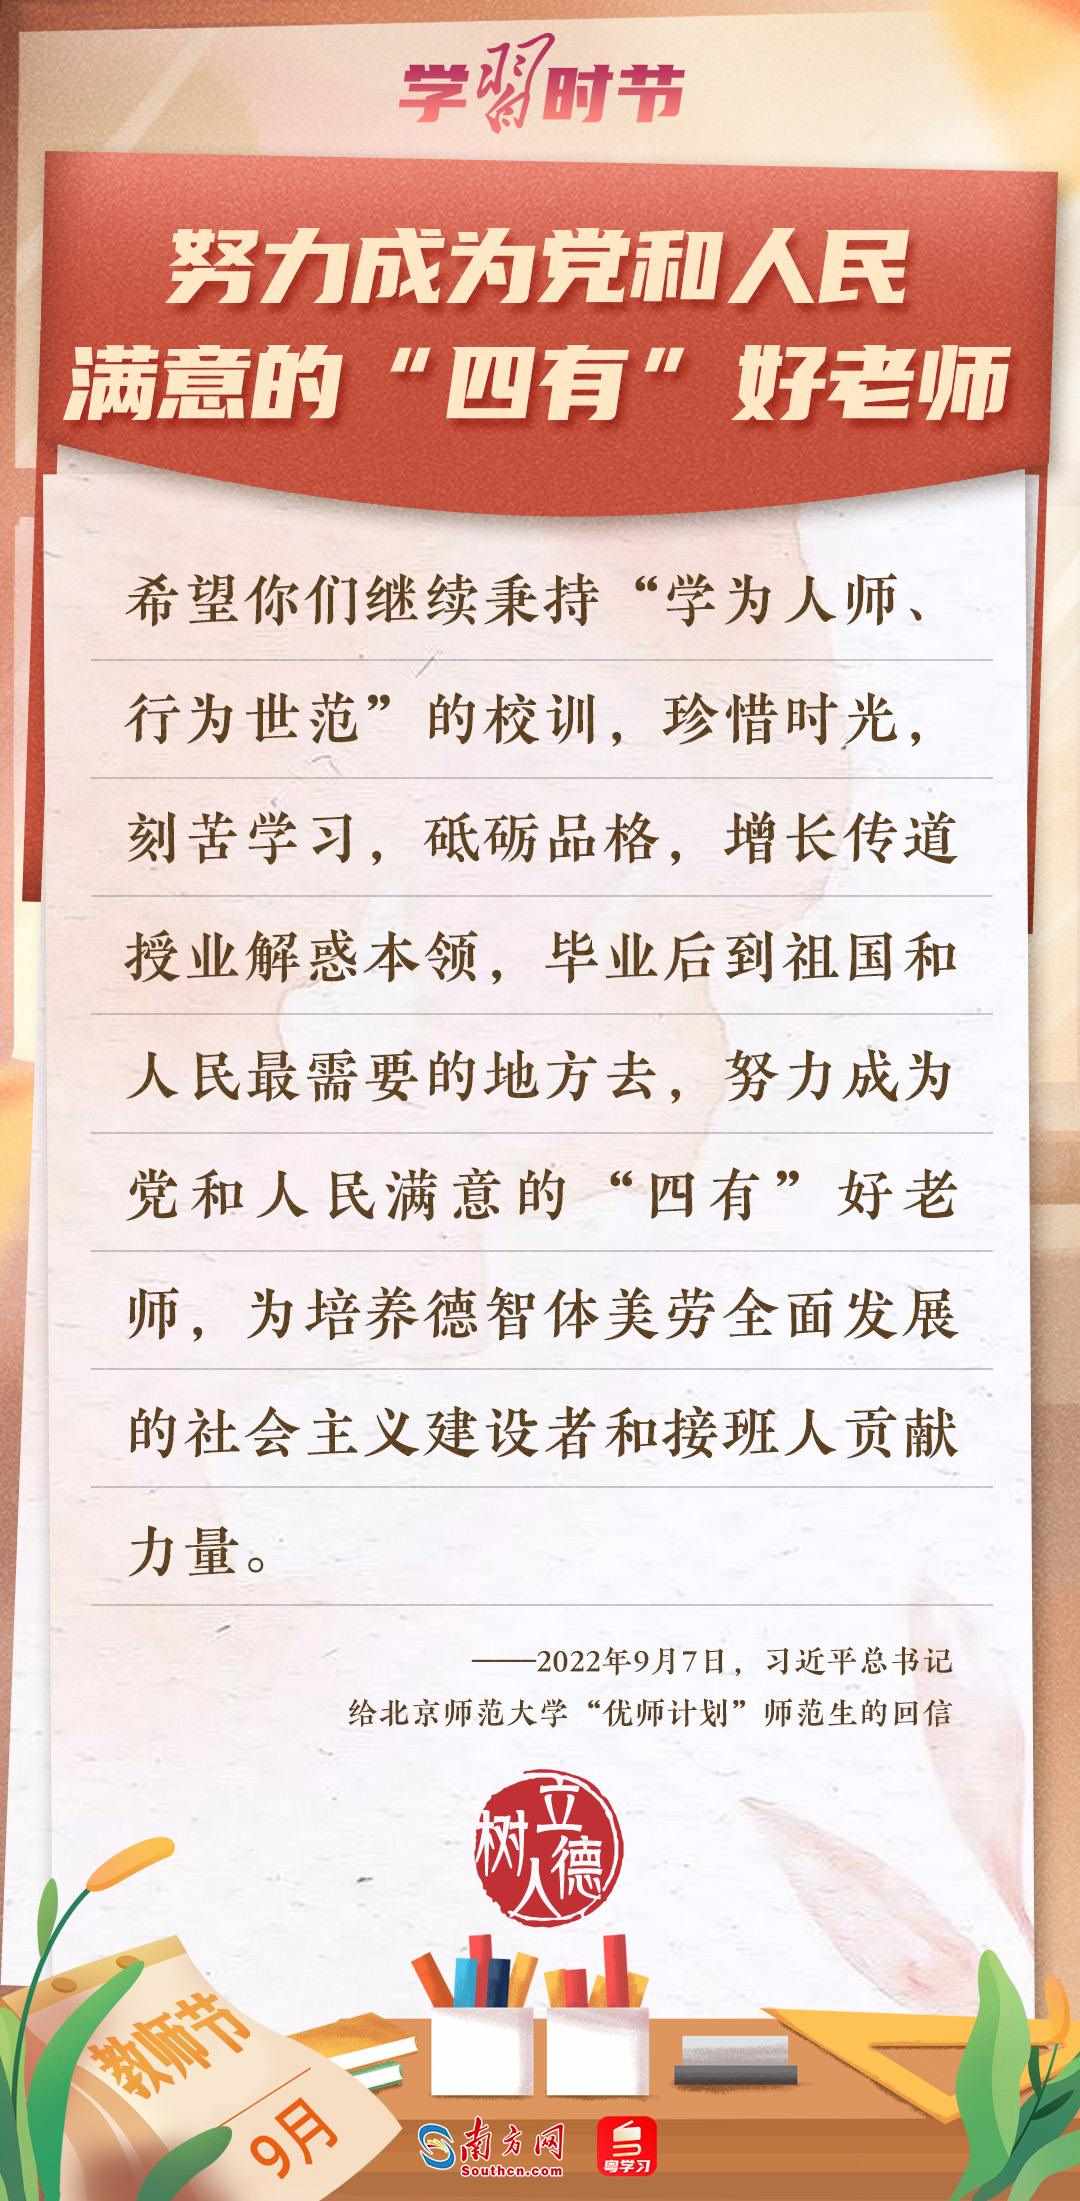 学習时节
努力成为党和人民
满意的“四有”好老师
希望你们继续秉持“学为人师、
行为世范”的校训，珍惜时光，
刻苦学习，砥砺品格，增长传道
授业解惑本领，毕业后到祖国和
人民最需要的地方去，努力成为
党和人民满意的“四有”好老
师，为培养德智体美劳全面发展
的社会主义建设者和接班人贡献
力量。
——2022年9月7日，习近平总书记
给北京师范大学“优师计划”师范生的回信
立德
树人
教师节
9月
南方网
Southcn.com
粤学习